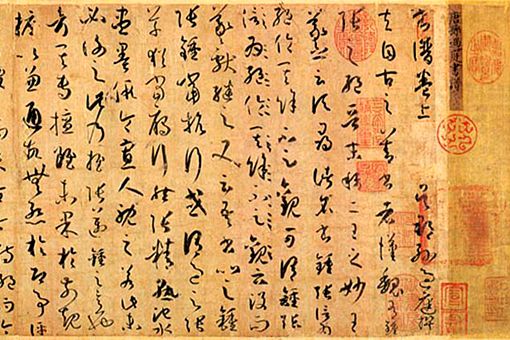 唐孫過庭書譜
書譜卷上 吳郡孫過庭撰
夫自古之善書者漢魏有鍾
張之絕晉末稱二王之妙王
羲之云頃尋諸名書鍾張信為
絕倫其餘不足觀可謂鍾張
絕倫其餘不足觀云沒而
羲獻繼之又云吾書比之鍾
張鍾當抗行或謂過之張
草猶當雁行然張精熟池水
盡墨假令寡人耽之若此未
必謝之此乃推張邁鍾之意
考其專擅雖未果於前規
摭以兼通故無慚於即事評